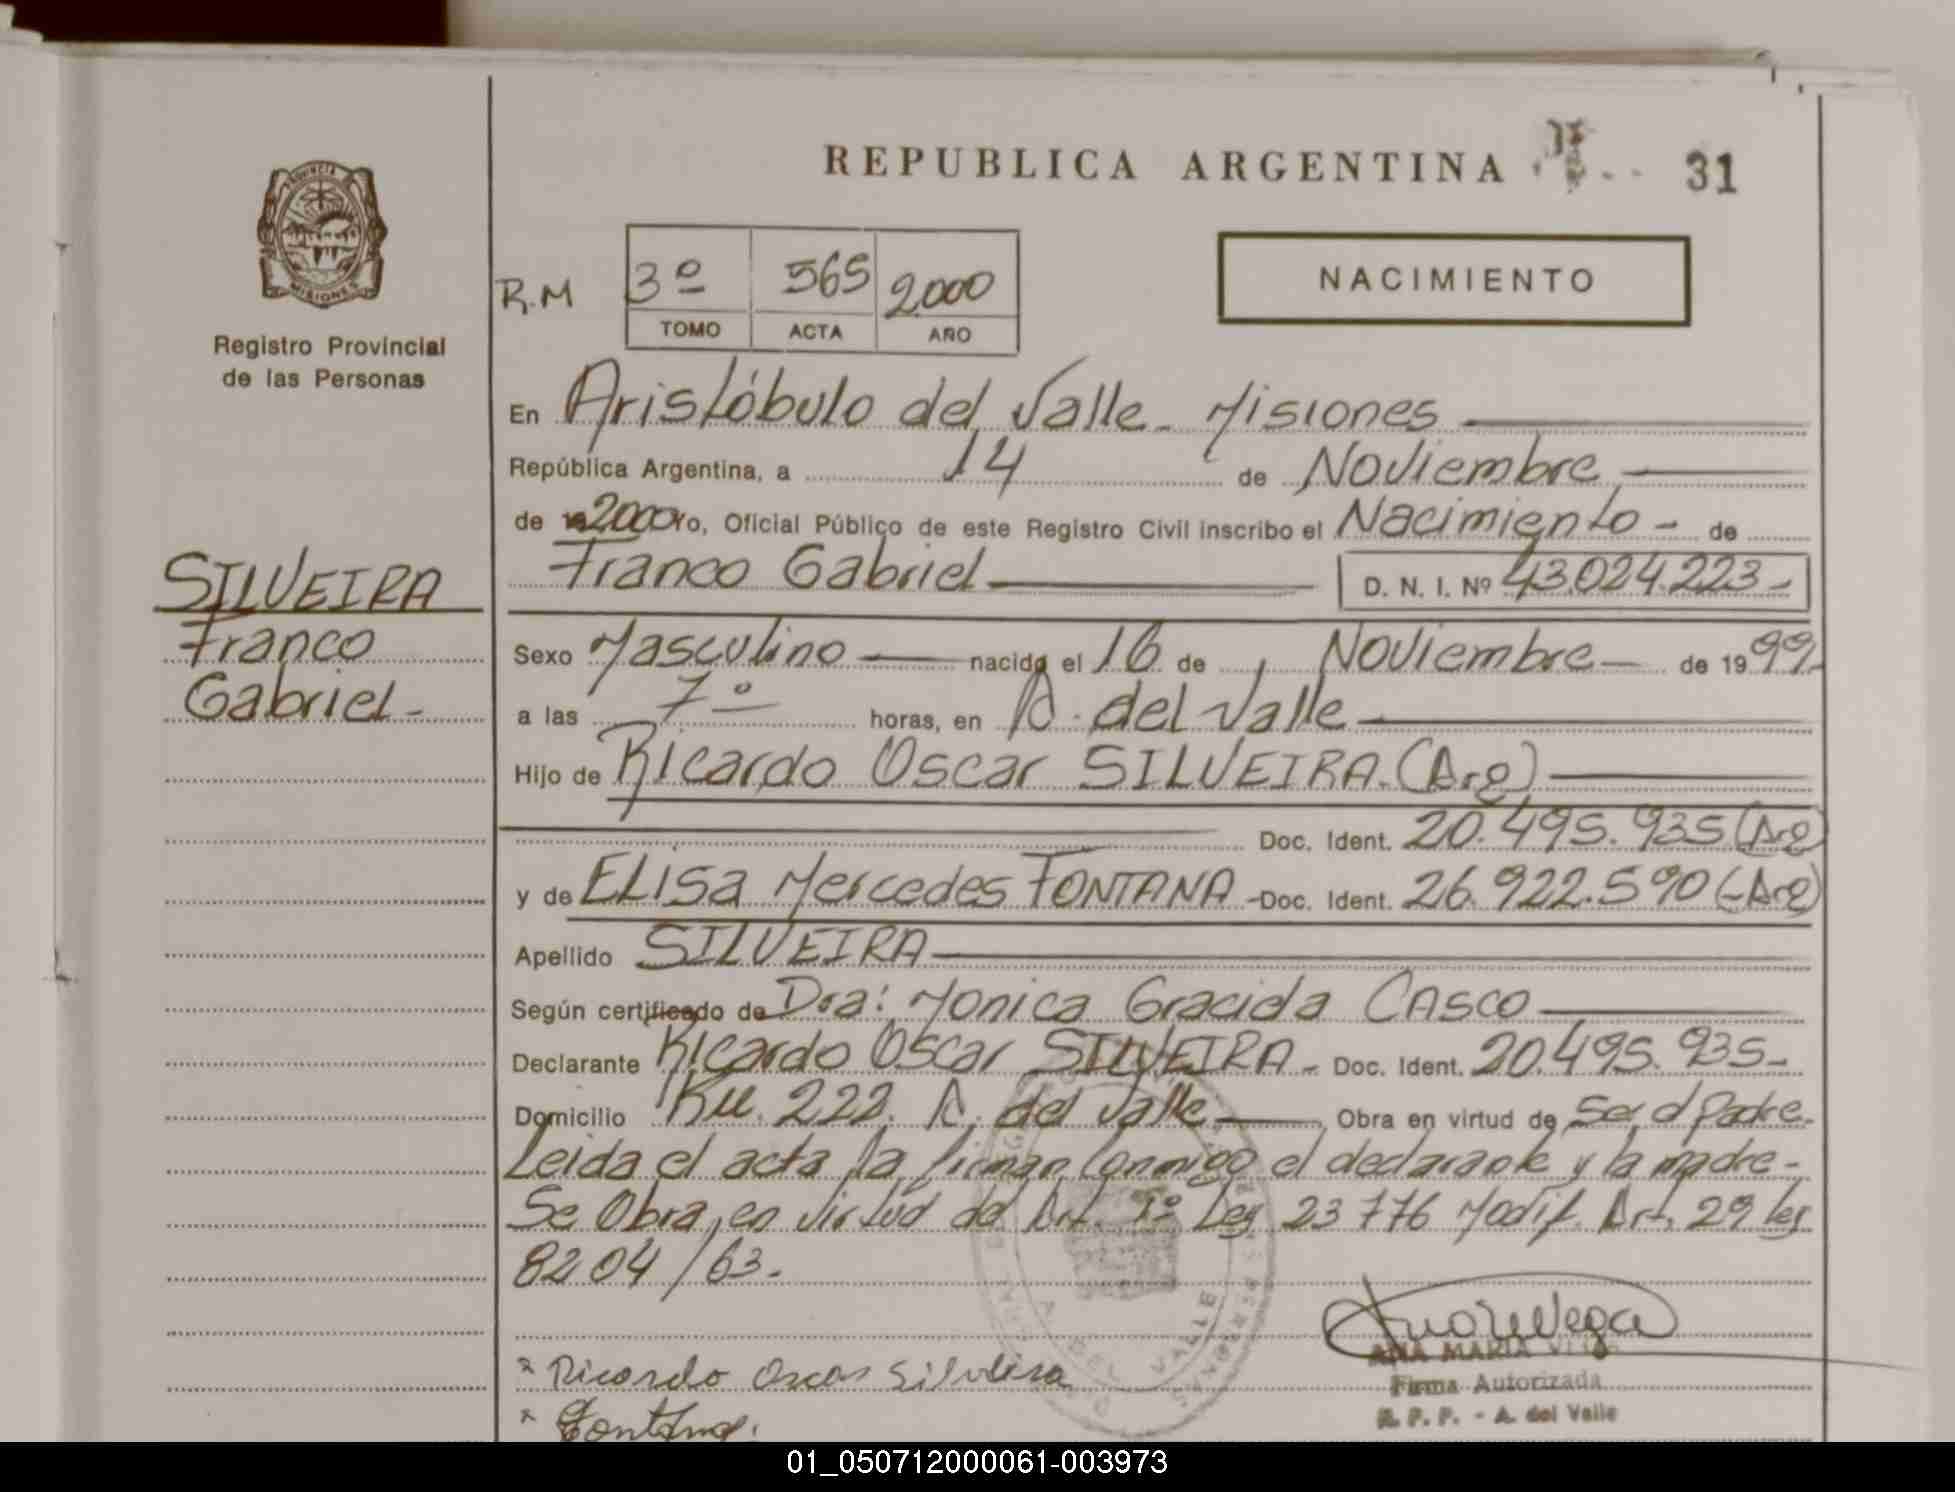 REPUBLICA ARGENTINA
31
PROVINCIA
MISIONES
Registro Provincial
de las Personas
R.M
3º 565 2000
TOMO ACTA AÑO
NACIMIENTO
En Aristóbulo del Valle - Misiones
República Argentina, a 14 de Noviembre
de 2000 Yo, Oficial Público de este Registro Civil inscribo el Nacimiento - de
Franco Gabriel D. N. I. Nº 43.024.223-
SILVEIRA
Franco
Gabriel-
Sexo Masculino nacido el 16 de Noviembre de 1999
a las 7º horas, en A. del Valle
Hijo de Ricardo Oscar SILVEIRA. (Arg)
Doc. Ident. 20.495.935 (Arg)
y de ELisa Mercedes FONTANA - Doc. Ident. 26.922.590 (-Arg)
Apellido SILVEIRA
Según certificado de Dra: Monica Graciela CASCO
Declarante Ricardo Oscar SILVEIRA - Doc. Ident. 20.495.935-
Domicilio 222. A. del Valle, Obra en virtud de Ser el Padre-
Leida el acta la firman conmigo el declarante y la madre-
Se Obra en virtud del Art. 1º Ley 23776 Modif. Art. 29 Ley
8204/63-
Ricardo Oscar Silveira
ANA MARIA VEGA
Firma Autorizada
R. P. P. - A. del Valle
A DEL VALLE
01_050712000061-003973